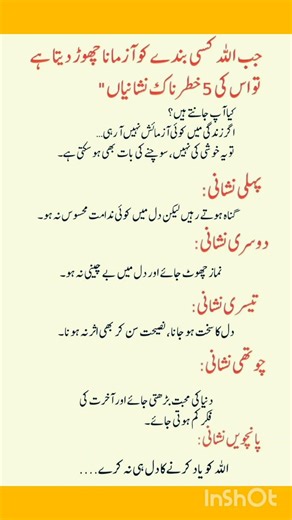 جب اللہ کسی بندے کو آزمانا چھوڑ دیتا ہے
تو اس کی 5 خطرناک نشانیاں"
کیا آپ جانتے ہیں؟
اگر زندگی میں کوئی آزمائش نہیں آ رہی...
تو یہ خوشی کی نہیں، سوچنے کی بات بھی ہو سکتی ہے۔
پہلی نشانی:
گناہ ہوتے رہیں لیکن دل میں کوئی ندامت محسوس نہ ہو۔
دوسری نشانی:
نماز چھوٹ جائے اور دل میں بے چینی نہ ہو۔
تیسری نشانی:
دل کا سخت ہو جانا، نصیحت سن کر بھی اثر نہ ہونا۔
چوتھی نشانی:
دنیا کی محبت بڑھتی جائے اور آخرت کی
فکر کم ہوتی جائے۔
پانچویں نشانی:
اللہ کو یاد کرنے کا دل ہی نہ کرے....
InShOt